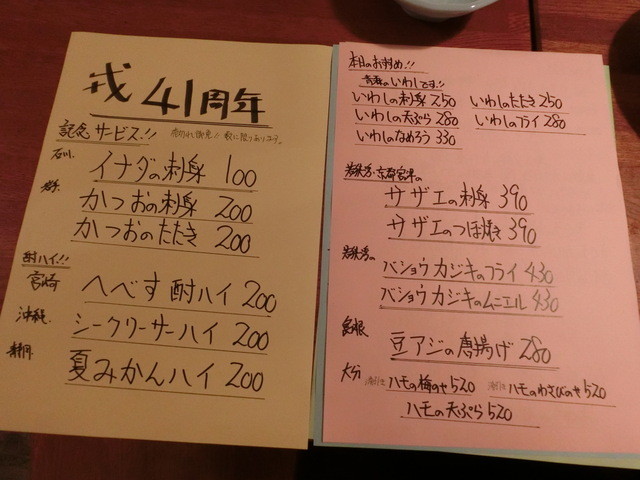 戎 41周年
記念サービス!!
売切れ御免!! 数に限りあります。
石川
イナダの刺身 100
かつおの刺身 200
かつおのたたき 200
酎ハイ!!
宮崎
へべす酎ハイ 200
沖縄
シークワーサーハイ 200
静岡
夏みかんハイ 200
本日のおすすめ!!
青森のいわしです!!
いわしの刺身 250 いわしのたたき 250
いわしの天ぷら 280 いわしのフライ 280
いわしのなめろう 330
サザエの刺身 390
サザエのつぼ焼き 390
バショウカジキのフライ 430
バショウカジキのムニエル 430
島根
豆アジの唐揚げ 280
大分
ハモの梅のせ 520 ハモのわさびのせ 520
ハモの天ぷら 520